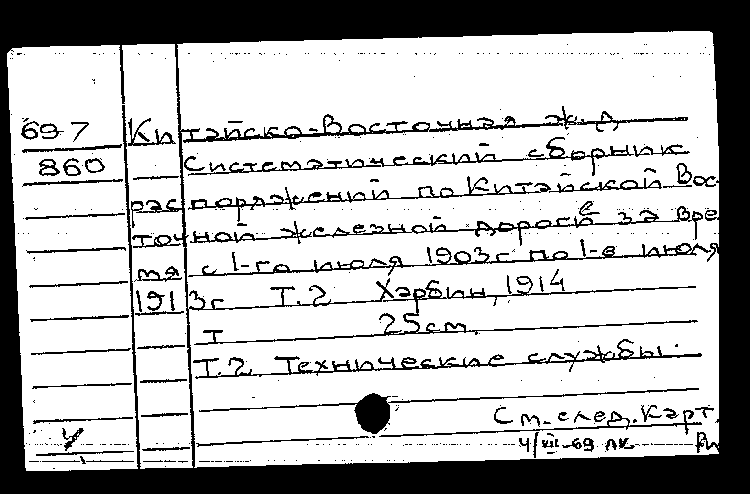 69-7 Китайско-Восточная ж.д.
860 Систематический сборник
распоряжений по Китайской Вос-
точной железной дороге за вре
мя с 1-го июля 1903г. по 1-е июля
1913г Т.2 Харбин, 1914
Т 25см.
Т.2. Технические службы.
См. след. карт.
4/VIII-69 ЛК